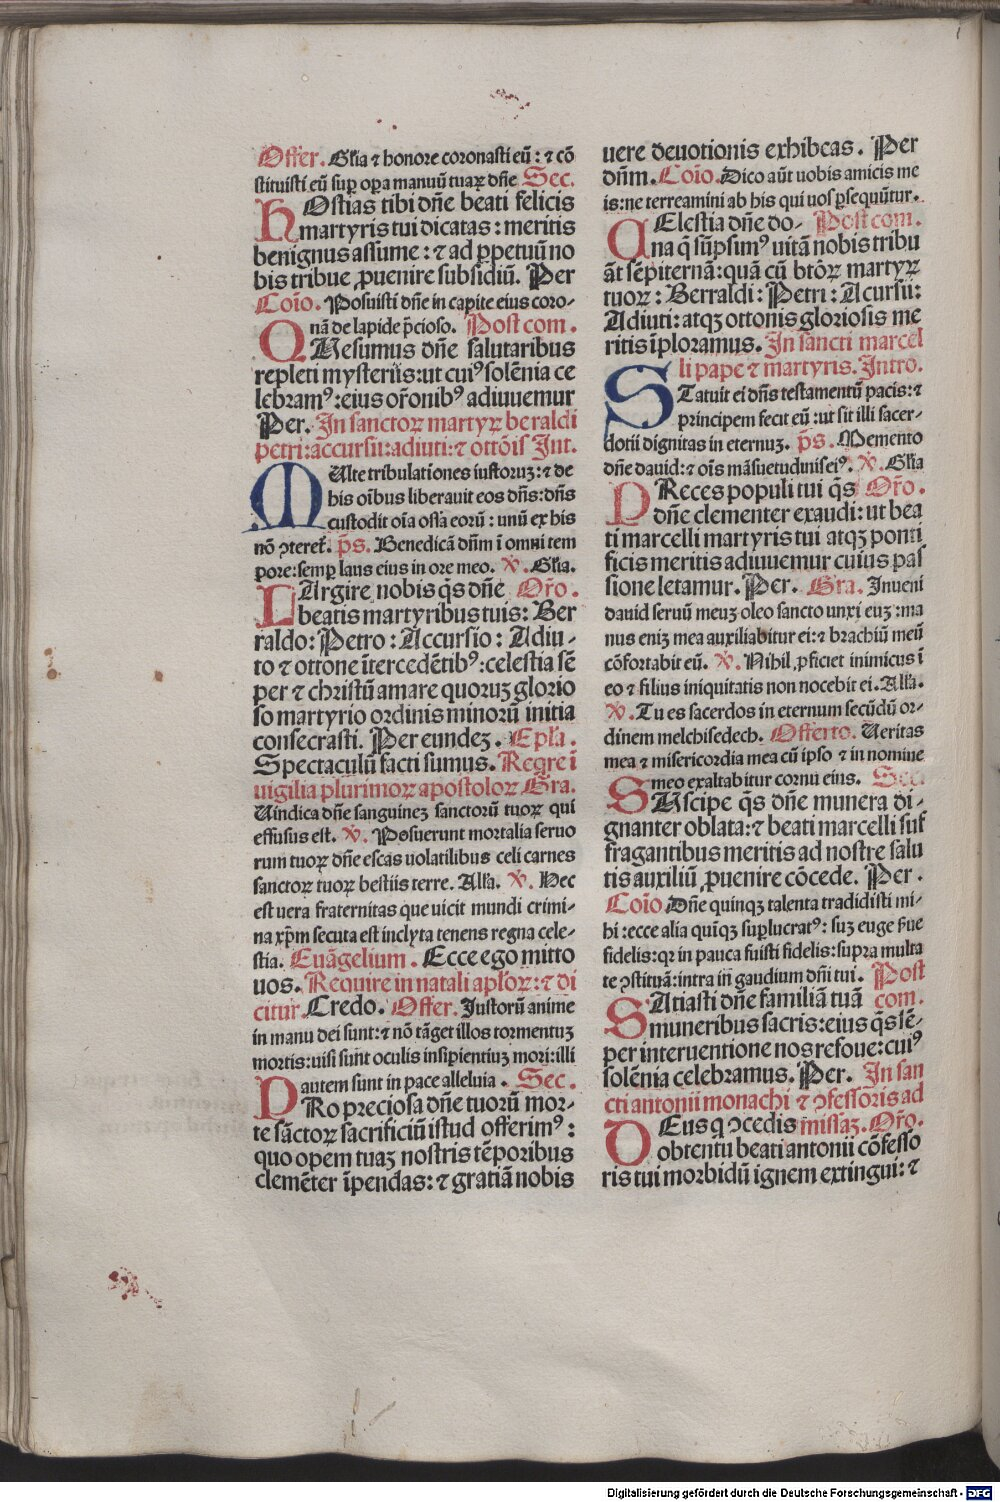 Offer. Gl̄ia ⁊ honore coronasti eū : ⁊ cō
stituisti eū suꝑ oꝑa manuū tuaꝝ dn̄e Sec.
HOstias tibi dn̄e beati felicis
martyris tui dicatas : meritis
benignus assume : ⁊ ad ꝑpetuū no
bis tribue ꝓuenire subsidiū. Per
Coīo. Posuisti dn̄e in capite eius coro-
nā de lapide p̄cioso. Post com.
QUesumus dn̄e salutaribus
repleti mysteriis: ut cuiꝰ solēnia ce
lebramꝰ: eius or̄onibꝰ adiuuemur
Per. In sanctoꝝ martyꝝ beraldi
petri: accursii: adiuti: ⁊ ottōis Int.
MUlte tribulationes iustoruꝫ: ⁊ de
his oībus liberauit eos dn̄s: dn̄s
custodit oīa ossa eorū : unū ex his
nō ꝯteret̄. p̄s. Benedicā dn̄m ī omni tem
pore: semꝑ laus eius in ore meo. ℣. Gl̄ia.
LArgire nobis q̄s dn̄e Or̄o.
beatis martyribus tuis: Ber
raldo: Petro : Accursio : Adiu-
to ⁊ ottone ītercedētibꝰ: celestia sē
per ⁊ christū amare quoruꝫ glorio
so martyrio ordinis minorū initia
consecrasti. Per eundeꝫ. Epl̄a.
Spectaculū facti sumus. Reqre ī
uigilia plurimoꝝ apostoloꝝ Gra.
Uindica dn̄e sanguineꝫ sanctorū tuoꝝ qui
effusus est. ℣. Posuerunt mortalia seruo
rum tuoꝝ dn̄e escas uolatilibus celi carnes
sanctoꝝ tuoꝝ bestiis terre. All̄a. ℣. Hec
est uera fraternitas que uicit mundi crimi-
na xp̄m secuta est inclyta tenens regna cele-
stia. Euāgelium. Ecce ego mitto
uos. Require in natali apl̄oꝝ: ⁊ di
citur Credo. Offer. Iustorū anime
in manu dei sunt: ⁊ nō tāget illos tormentuꝫ
mortis: uisi sunt oculis insipientiuꝫ mori: illi
autem sunt in pace alleluia . Sec.
PRo preciosa dn̄e tuorū mor-
te sāctoꝝ sacrificiū istud offerimꝰ :
quo opem tuaꝫ nostris tēporibus
clemēter īpendas: ⁊ gratiā nobis
uere deuotionis exhibeas . Per
dn̄m. Coīo. Dico aūt uobis amicis me
is: ne terreamini ab his qui uos ꝑsequūtur.
CElestia dn̄e do- Post com.
na q̄ sūpsimꝰ uitā nobis tribu
āt sēpiternā: quā cū btōꝝ martyꝝ
tuoꝝ : Berraldi: Petri: Acursii:
Adiuti: atqꝫ ottonis gloriosis me
ritis īploramus. In sancti marcel
li pape ⁊ martyris. Intro.
STatuit ei dn̄s testamentū pacis: ⁊
principem fecit eū : ut sit illi sacer-
dotii dignitas in eternuꝫ. p̄s. Memento
dn̄e dauid: ⁊ oīs māsuetudinis eiꝰ. ℣. Gl̄ia
PReces populi tui q̄s Or̄o.
dn̄e clementer exaudi: ut bea
ti marcelli martyris tui atqꝫ ponti
ficis meritis adiuuemur cuius pas
sione letamur. Per. Gra. Inueni
dauid seruū meuꝫ oleo sancto unxi euꝫ : ma
nus eniꝫ mea auxiliabitur ei: ⁊ brachiū meū
cōfortabit eū. ℣. Nihil ꝓficiet inimicus ī
eo ⁊ filius iniquitatis non nocebit ei. All̄a.
℣. Tu es sacerdos in eternum secūdū or-
dinem melchisedech. Offerto. Ueritas
mea ⁊ misericordia mea cū ipso ⁊ in nomine
meo exaltabitur cornu eius. Sec.
SUscipe q̄s dn̄e munera di-
gnanter oblata: ⁊ beati marcelli suf
fragantibus meritis ad nostre salu
tis auxiliū ꝓuenire cōcede. Per .
Coīo Dn̄e quinqꝫ talenta tradidisti mi-
hi : ecce alia quīqꝫ suꝑlucratꝰ: suꝫ euge s̄ue
fidelis: qꝛ in pauca fuisti fidelis: supra multa
te ꝯstituā: intra in̄ gaudium dn̄i tui. Post
SAtiasti dn̄e familiā tuā com.
muneribus sacris: eius q̄s sē-
per interuentione nos refoue: cuiꝰ
solēnia celebramus. Per. In san
cti antonii monachi ⁊ ꝯfessoris ad
DEus q ꝯcedis missaꝫ. Or̄o.
obtentu beati antonii cōfesso
ris tui morbidū ignem extingui: ⁊
Digitalisierung gefördert durch die Deutsche Forschungsgemeinschaft - DFG